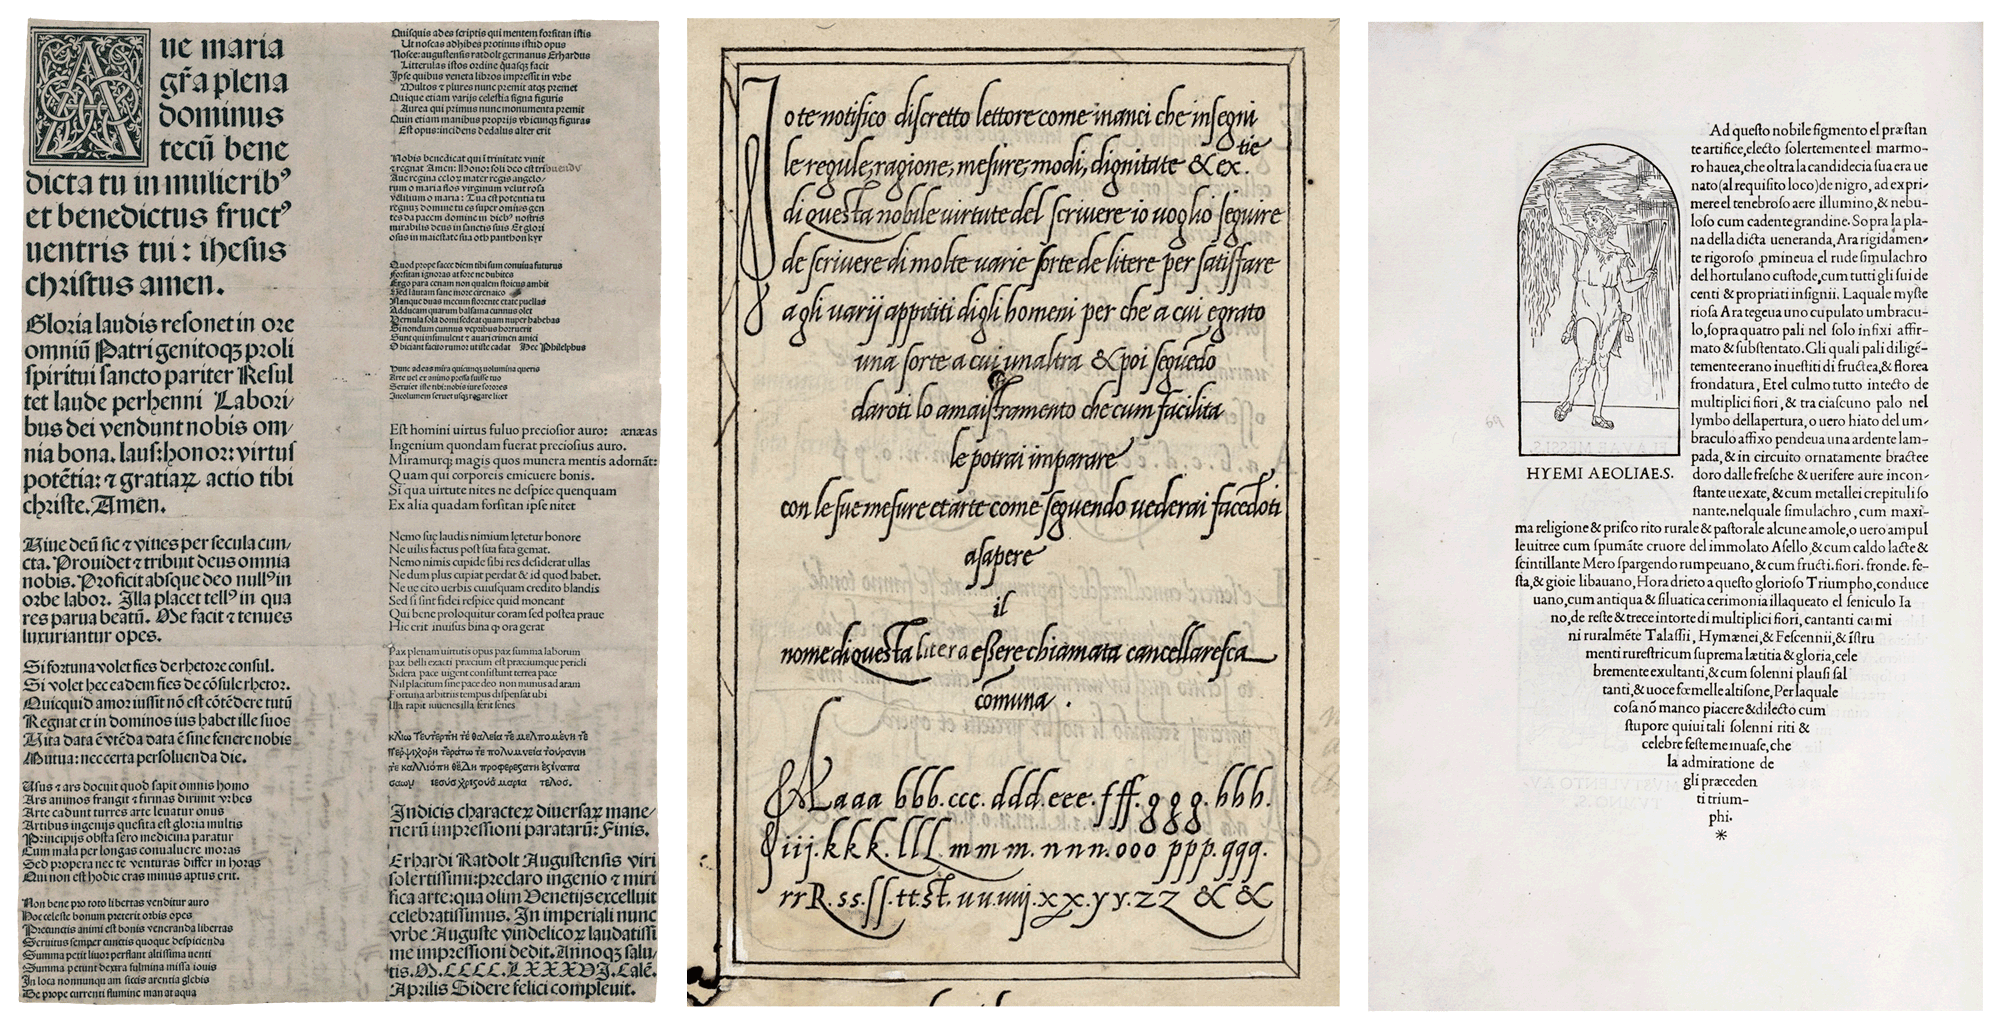 ue maria
gr̄a plena
dominus
tecū bene
dicta tu in mulierib⁹
et benedictus fruct⁹
uentris tui : ihesus
christus amen.
Gloria laudis resonet in ore
omniū Patri genitoqꝫ proli
spiritui sancto pariter Resul
tet laude perhenni Labori/
bus dei vendunt nobis om/
nia bona. laus: honor: virtus
potētia: ⁊ gratiaꝝ actio tibi
christe. Amen.
Uiue deū sic ⁊ viues per secula cun/
cta. Prouidet ⁊ tribuit deus omnia
nobis. Proficit absque deo null⁹ in
orbe labor. Illa placet tell⁹ in qua
res parua beatū. Me facit ⁊ tenues
luxuriantur opes.
Si fortuna volet fies de rhetore consul.
Si volet hec eadem fies de cōsule rhetor.
Quicquid amor iussit nō est cōtēdere tutū
Regnat et in dominos ius habet ille suos
Uita data ē vtēda data ē sine fenere nobis
Mutua: nec certa persoluenda die.
Usus ⁊ ars docuit quod sapit omnis homo
Ars animos frangit ⁊ firmas dirimit vrbes
Arte cadunt turres arte leuatur onus
Artibus ingenijs quesita est gloria multis
Principijs obsta sero medicina paratur
Cum mala per longas conualuere moras
Sed propera nec te venturas differ in horas
Qui non est hodie cras minus aptus erit.
Non bene pro toto libertas venditur auro
Hoc celeste bonum preterit orbis opes
Precunctis animi est bonis veneranda libertas
Seruitus semper cunctis quoque despicienda
Summa petit liuor perflant altissima uenti
Summa petunt dextra fulmina missa iouis
In loca nonnunquam siccis arentia glebis
De prope currenti flumine manat aqua
Quisquis ades scriptis qui mentem forsitan istis
Ut noscas adhibes protinus istud opus
Nosce: augustensis ratdolt germanus Erhardus
Litterulas istos ordine quasqꝫ facit
Ipse quibus veneta libros impressit in vrbe
Multos ⁊ plures nunc premit atqꝫ premet
Quique etiam varijs celestia signa figuris
Aurea qui primus nunc monumenta premit
Quin etiam manibus proprijs vbicunqꝫ figuras
Est opus: incidens dedalus alter erit
Nobis benedicat qui ī trinitate viuit
⁊ regnat Amen: Honor soli deo est tribuendꝰ
Aue regina celoꝝ mater regis angelo/
rum o maria flos virginum velut rosa
vel lilium o maria: Tua est potentia tu
regnum domine tu es super omnes gen
tes da pacem domine in dieb⁹ nostris
mirabilis deus in sanctis suis Et glori
osus in maiestate sua oth panthon kyr
Quod prope facce diem tibi sum conuiua futurus
Forsitan ignoras at fore ne dubites
Ergo para cenam non qualem stoicus ambit
Sed lautam sane more cirenaico
Nanque duas mecum florente etate puellas
Adducam quarum balsama cunnus olet
Pernula sola domi sedeat quam nuper habebas
Si nondum cunnus vepribus horruerit
Sunt qui insimulent ⁊ auari crimen amici
Obiciant facito rumor ut iste cadat Hec Philelphus
Hunc adeas mira quicunqꝫ volumina queris
Arte uel ex animo pressa fuisse tuo
Seruiet iste tibi: nobis iure sorores
Incolumem seruet usqꝫ rogare licet
Est homini uirtus fuluo preciosior auro: ænæas
Ingenium quondam fuerat preciosius auro.
Miramurqꝫ magis quos munera mentis adornāt:
Quam qui corporeis emicuere bonis.
Si qua uirtute nites ne despice quenquam
Ex alia quadam forsitan ipse nitet
Nemo suę laudis nimium lętetur honore
Ne uilis factus post sua fata gemat.
Nemo nimis cupide sibi res desiderat ullas
Ne dum plus cupiat perdat & id quod habet.
Ne ue cito uerbis cuiusquam credito blandis
Sed si sint fidei respice quid moneant
Qui bene proloquitur coram sed postea praue
Hic erit inuisus bina ꝙ ora gerat
Pax plenam uirtutis opus pax summa laborum
pax belli exacti præcium est præciumque pericli
Sidera pace uigent consistunt terrea pace
Nil placitum sine pace deo non munus ad aram
Fortuna arbitriis tempus dispensat ubi
Illa rapit iuuenes illa ferit senes
κλιω Τευτέρπη τε θαλεία τε μελπομένη τε
Περψιχορη τεράτω τε πολυμνεία τουρανιη
τε καλλιόπη θεΔη προφερεςατη εξίναπα
σαων ιεσυς χριςουσ μαρια τελος.
Indicis characteꝝ diuersaꝝ mane/
rierū impressioni parataꝝ: Finis.
Erhardi Ratdolt Augustensis viri
solertissimi: preclaro ingenio ⁊ miri
fica arte: qua olim Venetijs excelluit
celebratissimus. In imperiali nunc
vrbe Auguste vindelicoꝝ laudatissi
me impressioni dedit. Annoqꝫ salu/
tis. M.CCCC.LXXXVI. Calē.
Aprilis Sidere felici compleuit.
Io te notifico discretto lettore come inanci che insegni
le regule, ragione, mesure, modi, dignitate & extie.
di questa nobile uirtute del scriuere io uoglio seguire
de scriuere di molte uarie sorte de litere per satisfare
a gli uarij appititi di gli homeni per che a cui egrato
una sorte a cui unaltra & poi seguēdo
daroti lo amaistramento che cum facilita
le potrai imparare
con le sue mesure et arte come seguendo uederai facēdoti
asapere
il
nome di questa litera essere chiamata cancellaresca
cōmuna .
Aaaa bbb.ccc.ddd.eee.fff.ggg.hhh.
iij.kkk.lll.mmm.nnn.ooo ppp.qqq.
rrR.ss.ſſ.tt.st.uu.uuij.xx.yy.zz & &
HYEMI AEOLIAE.S.
Ad questo nobile figmento el præstan
te artifice, electo solertemente el marmo-
ro hauea, che oltra la candidecia sua era ue
nato (al requisito loco) de nigro, ad expri-
mere el tenebroso aere illumino, & nebu-
loso cum cadente grandine. Sopra la pla-
na della dicta ueneranda, Ara rigidamen-
te rigoroso ,pmineua el rude simulachro
del hortulano custode, cum tutti gli sui de
centi & propriati insignii. Laquale myste
riosa Ara tegeua uno cupulato umbracu-
lo, sopra quatro pali nel solo infixi affir-
mato & substentato. Gli quali pali diligē-
temente erano inuestiti di fructea, & florea
frondatura, Et el culmo tutto intecto de
multiplici fiori, & tra ciascuno palo nel
lymbo dellapertura, o uero hiato del um-
braculo affixo pendeua una ardente lam-
pada, & in circuito ornatamente bractee
doro dalle fresche & uerifere aure incon-
stante uexate, & cum metallei crepituli so
nante. nelquale simulachro, cum maxi-
ma religione & prisco rito rurale & pastorale alcune amole, o uero ampul
le uitree cum spumāte cruore del immolato Asello, & cum caldo lacte &
scintillante Mero spargendo rumpeuano, & cum fructi. fiori. fronde. fe-
sta, & gioie libauano, Hora drieto a questo glorioso Triumpho, conduce
uano, cum antiqua & siluatica cerimonia illaqueato el seniculo Ia
no, de reste & trece intorte di multiplici fiori, cantanti carmi
ni ruralmēte Talassii, Hymænei, & Fescennii, & istru
menti rurestri cum suprema lætitia & gloria, cele
bremente exultanti, & cum solenni plausi sal
tanti, & uoce fœmelle altisone, Per laquale
cosa nō manco piacere & dilecto cum
stupore quiui tali solenni riti &
celebre feste me inuase, che
la admiratione de
gli præceden
ti trium-
phi.
*